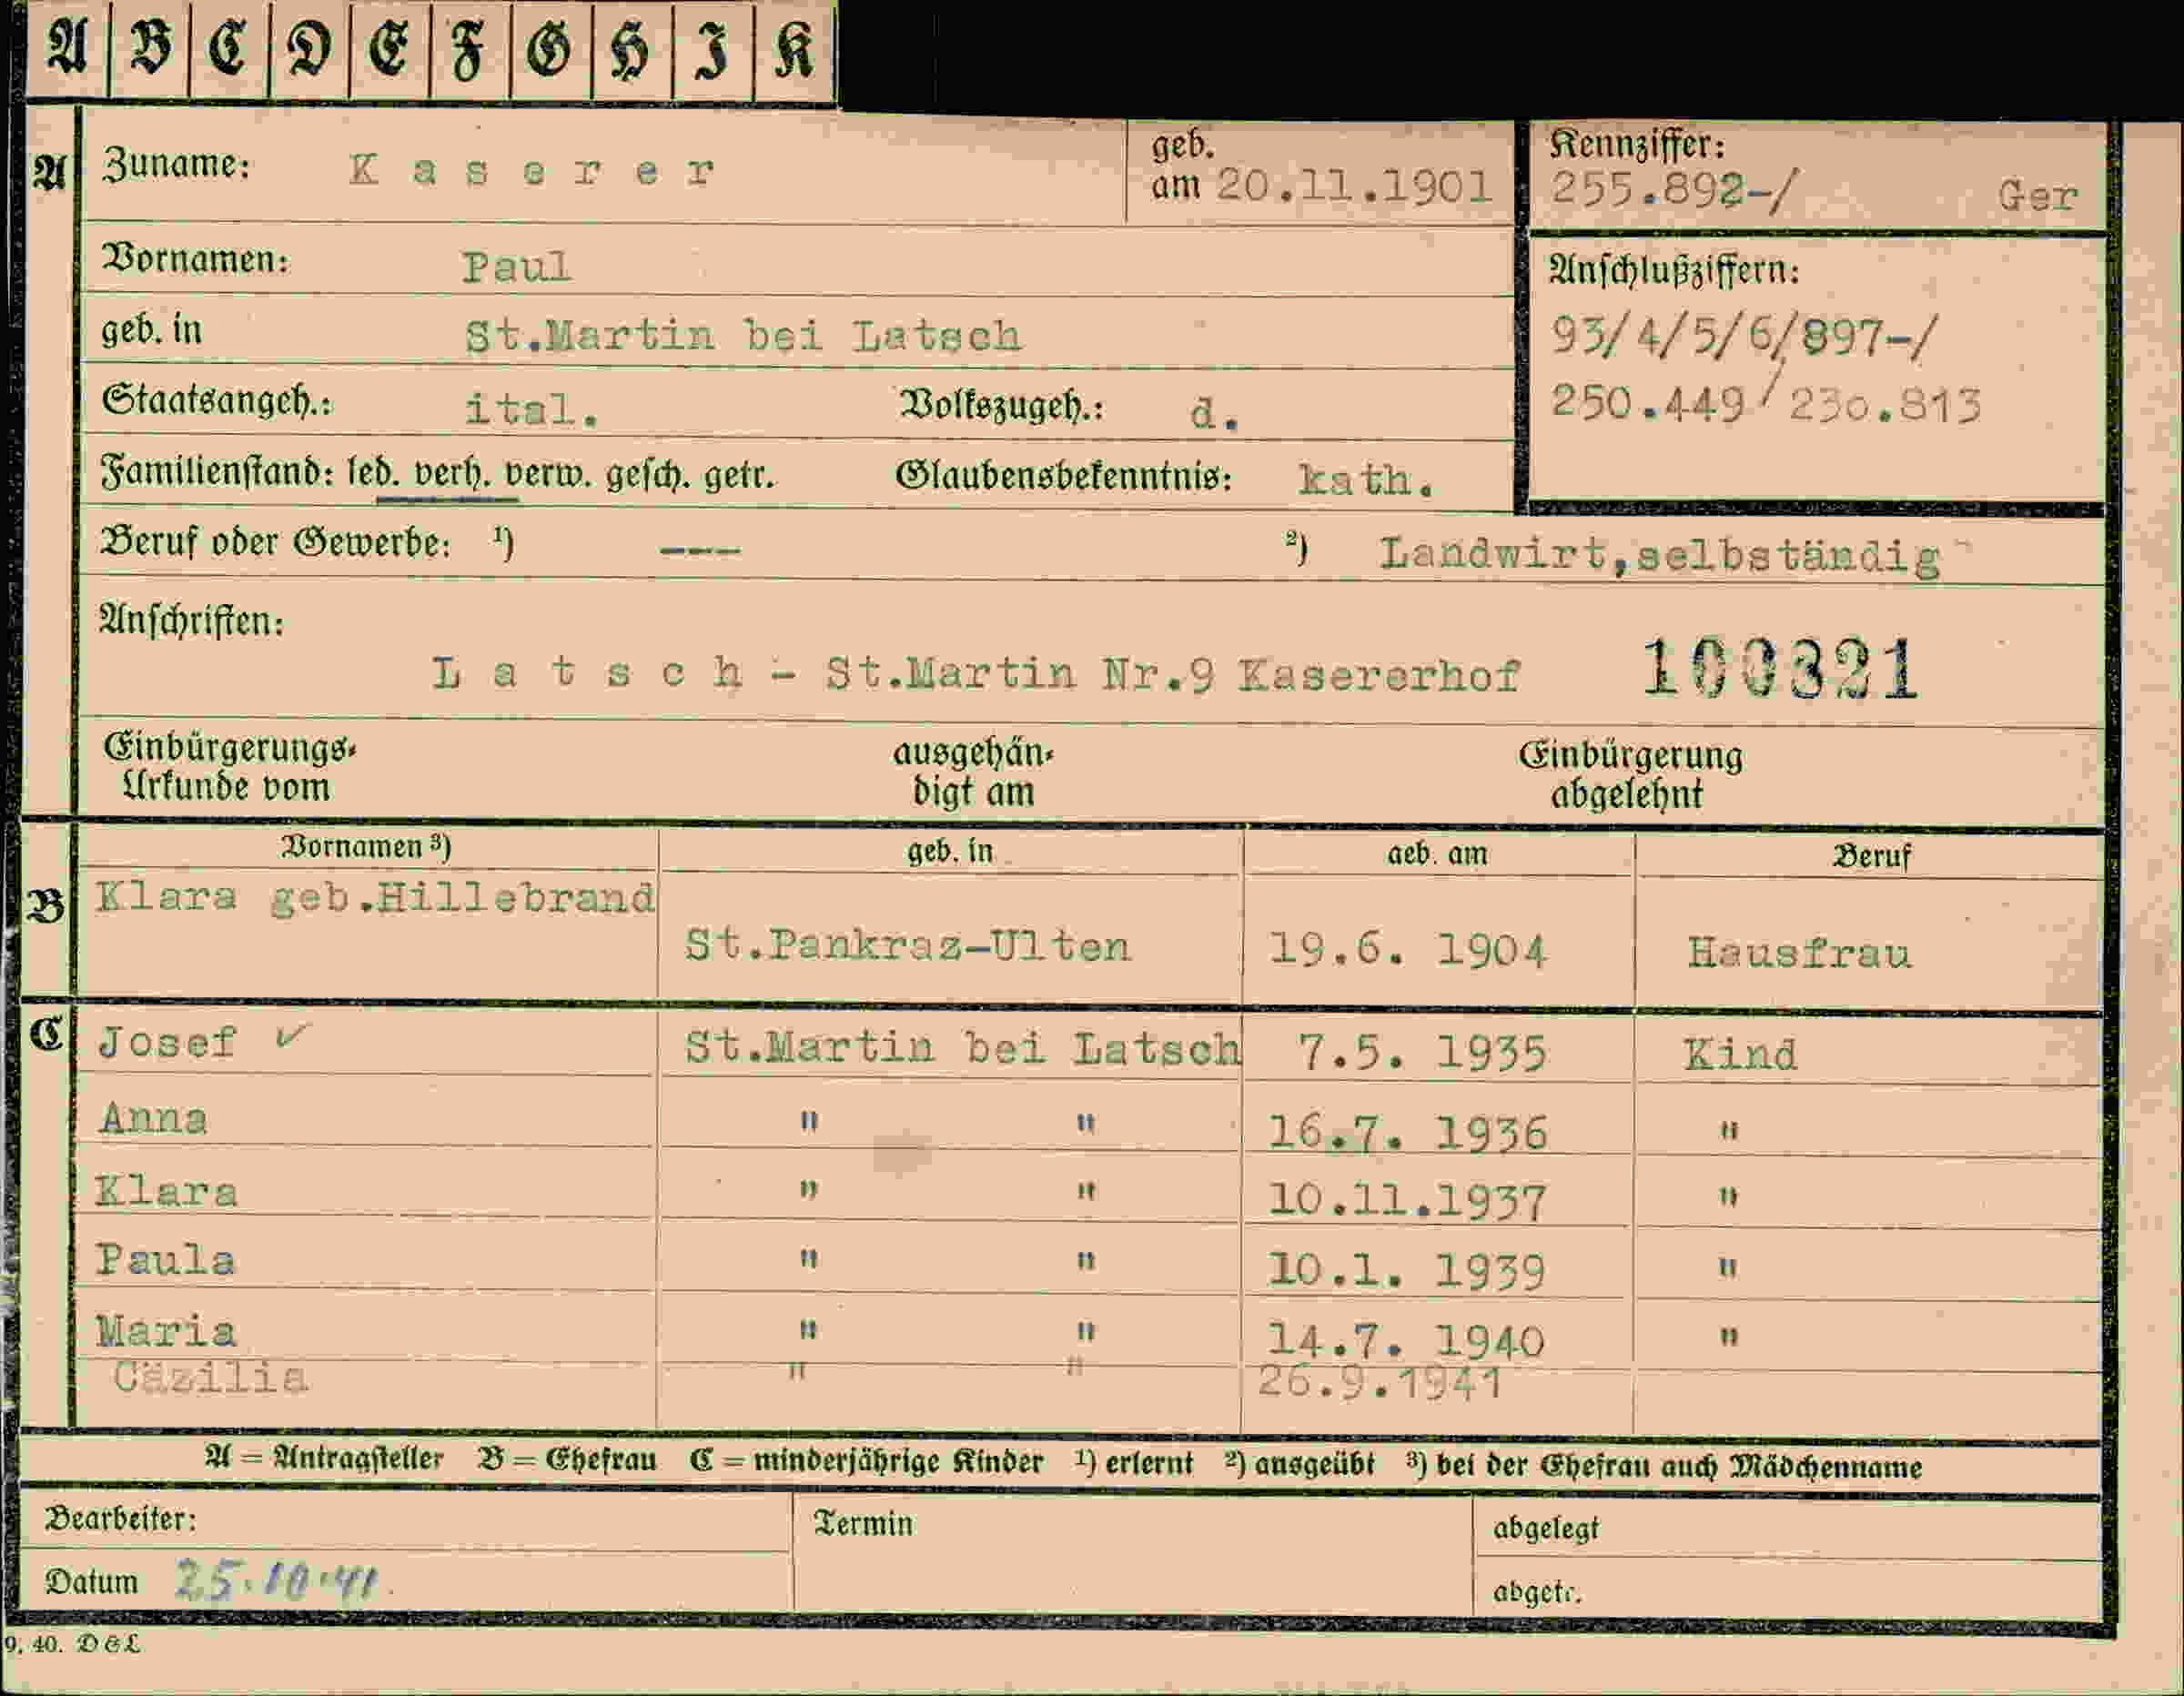 A B C D E F G H I K
A Zuname: Kaserer geb. am 20.11.1901 Kennziffer: 255.892-/ Ger
Vornamen: Paul
Anschlußziffern:
geb. in St.Martin bei Latsch 93/4/5/6/897-/
Staatsangeh.: ital. Volkszugeh.: d. 250.449/230.813
Familienstand: led. verh. verw. gesch. getr. Glaubensbekenntnis: kath.
Beruf oder Gewerbe: ¹) --- ²) Landwirt,selbständig
Anschriften:
Latsch - St.Martin Nr.9 Kasererhof 100321
Einbürgerungs- ausgehän- Einbürgerung
Urkunde vom digt am abgelehnt
Vornamen ³) geb. in geb. am Beruf
B Klara geb.Hillebrand
St.Pankraz-Ulten 19.6. 1904 Hausfrau
C Josef ✓ St.Martin bei Latsch 7.5. 1935 Kind
Anna " " 16.7. 1936 "
Klara " " 10.11.1937 "
Paula " " 10.1. 1939 "
Maria " " 14.7. 1940 "
Cäzilia " " 26.9.1941
A = Antragsteller B = Ehefrau C = minderjährige Kinder ¹) erlernt ²) ausgeübt ³) bei der Ehefrau auch Mädchenname
Bearbeiter: Termin abgelegt
Datum 25.10.41. abgetr.
9. 40. D & L